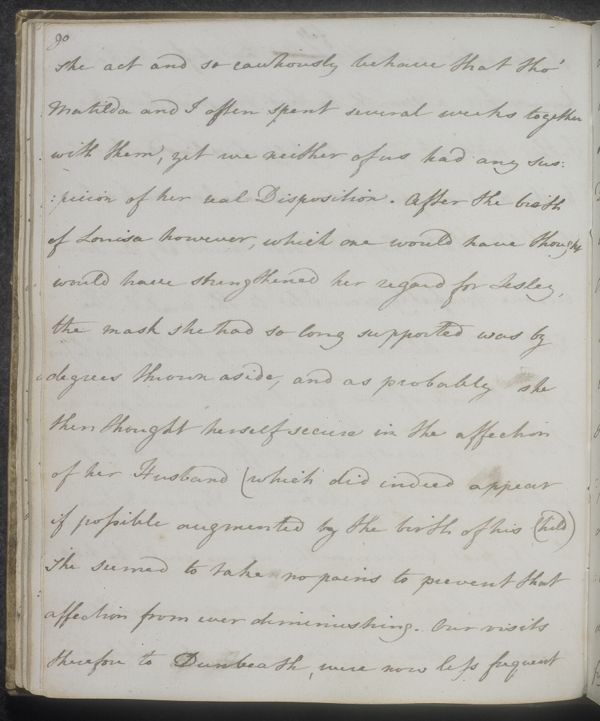 90
she act and so cautiously behave that tho'
Matilda and I often spent several weeks together
with them, yet we neither of us had any sus:
:picion of her real Disposition. After the birth
of Louisa however, which one would have thought
would have strengthened her regard for Lesley,
the mask she had so long supported was by
degrees thrown aside, and as probably she
then thought herself secure in the affection
of her Husband (which did indeed appear
if possible augmented by the birth of his Child)
she seemed to take no pains to prevent that
affection from ever diminishing. Our visits
therefore to Dunbeath, were now less frequent